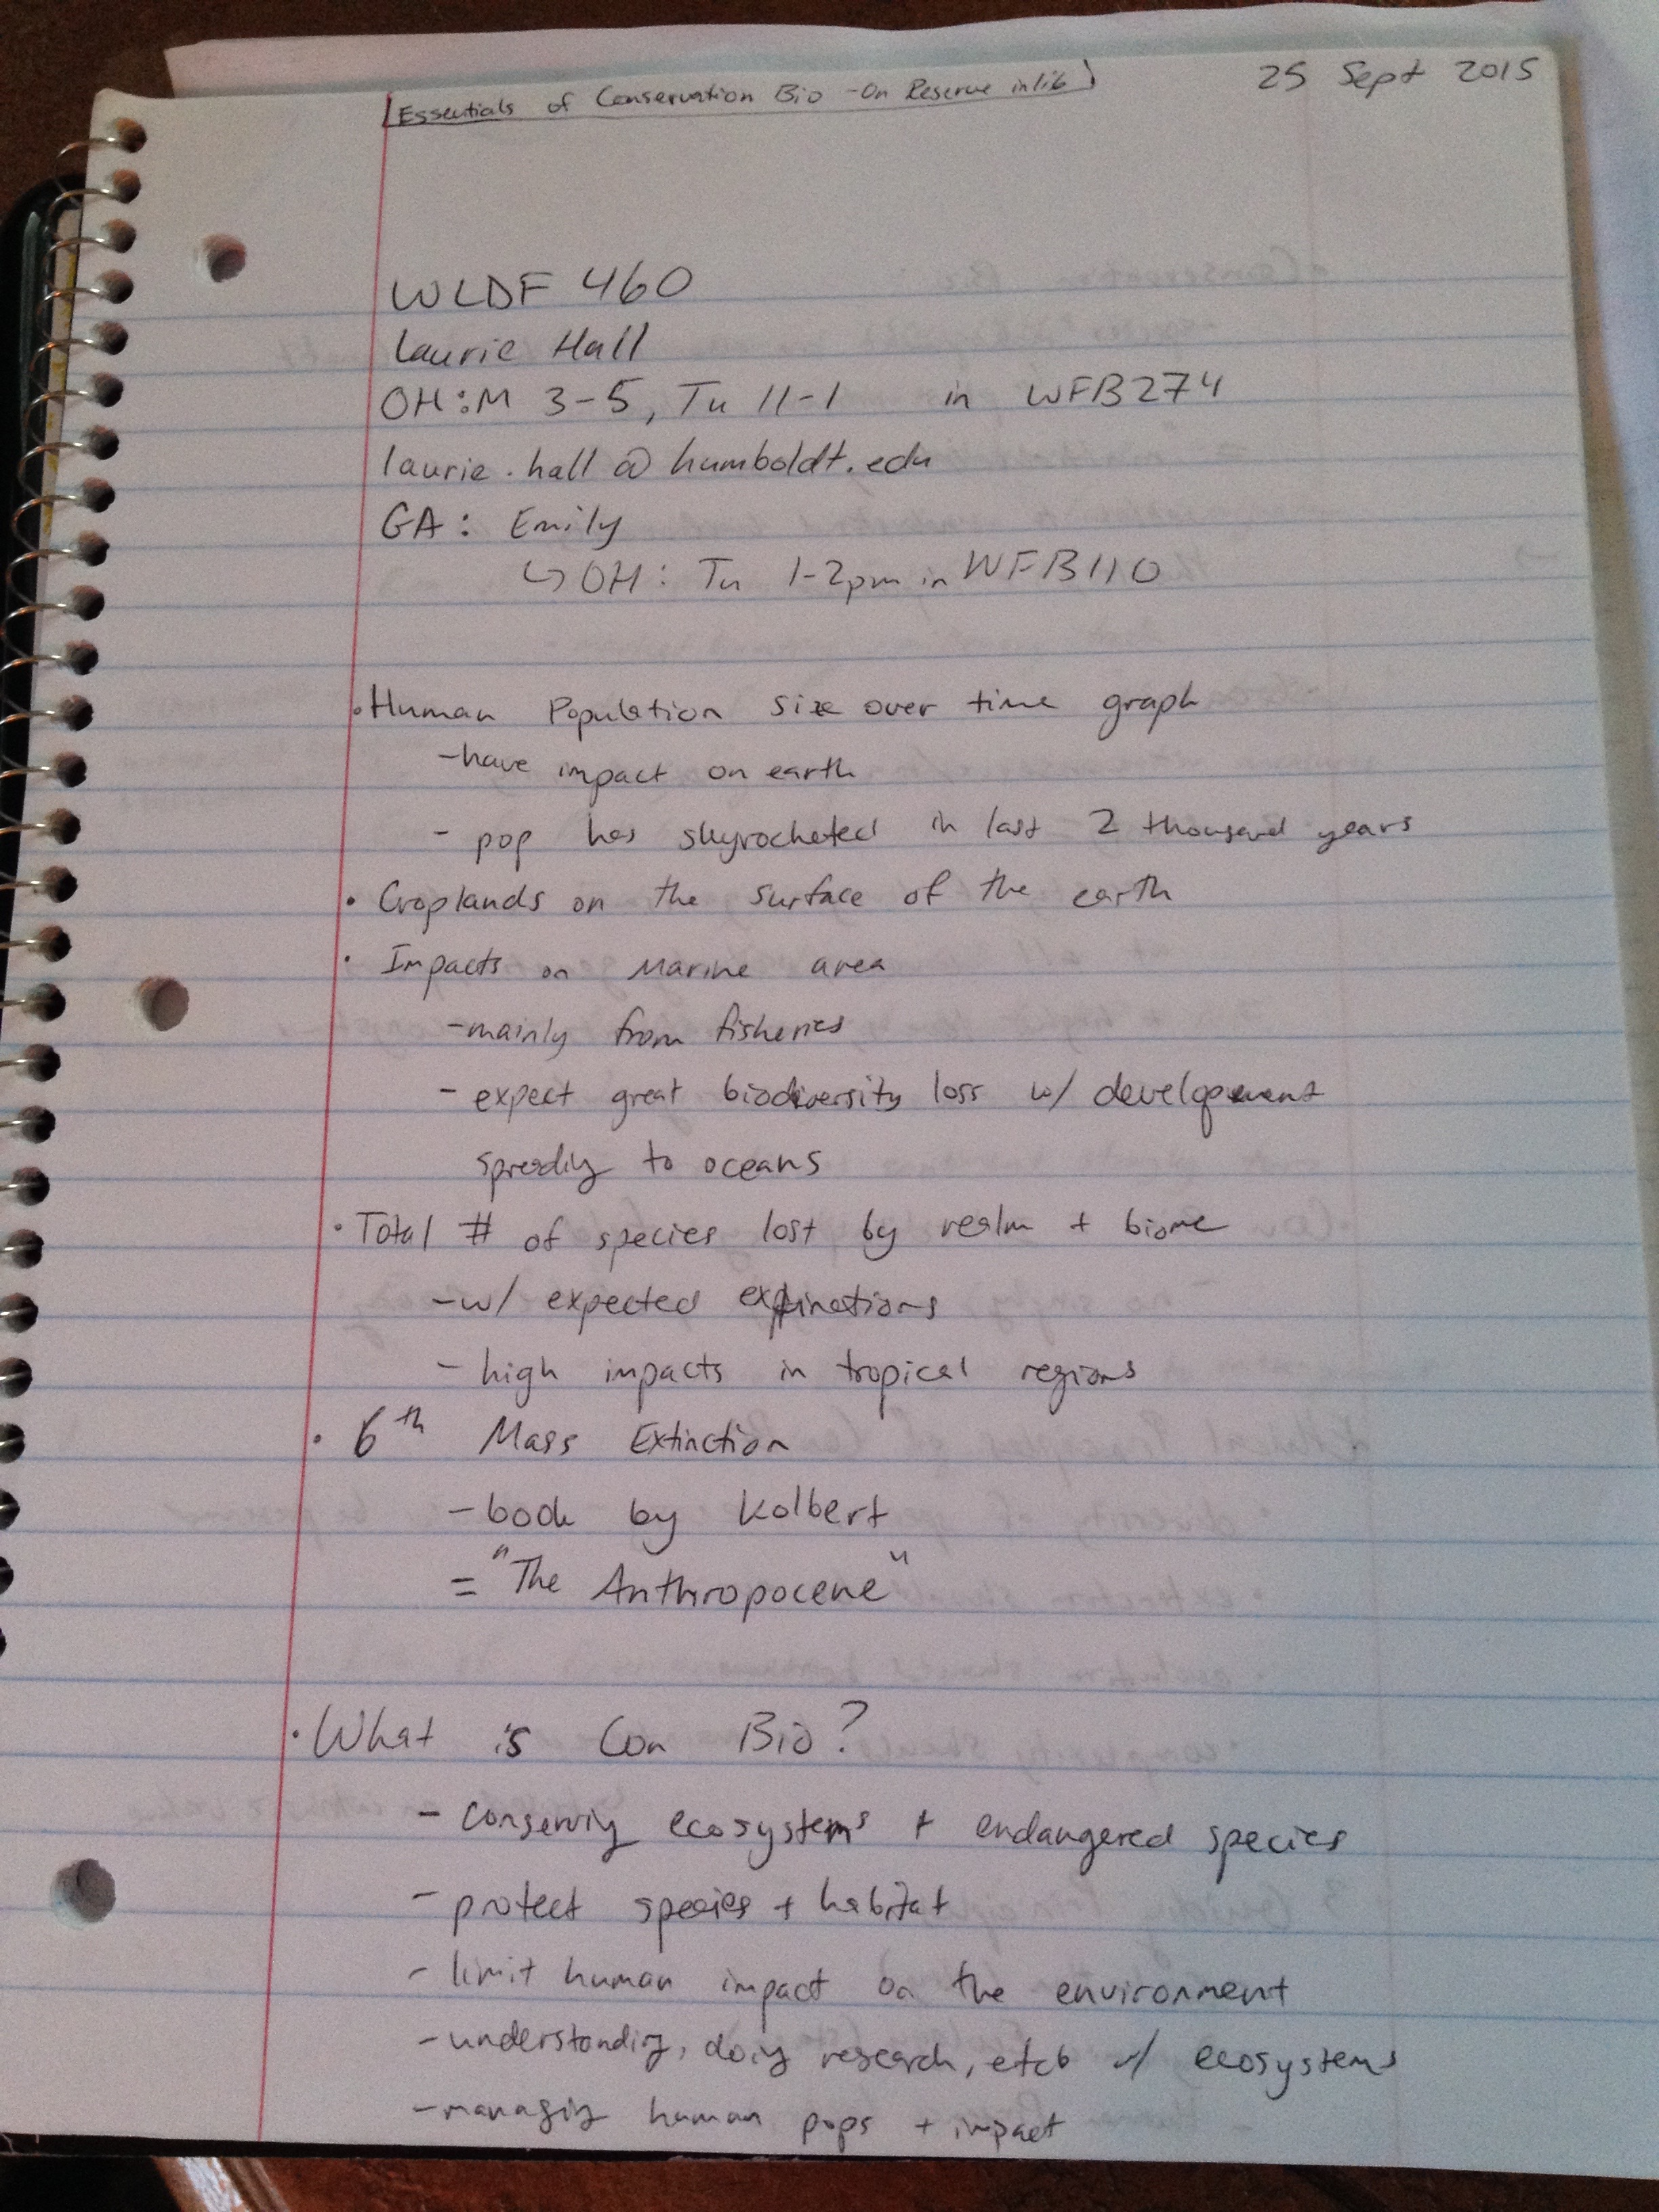 [Essentials of Conservation Bio - On Reserve in lib]
25 Sept 2015
WLDF 460
Laurie Hall
OH: M 3-5, Tu 11-1 in WFB274
laurie.hall@humboldt.edu
GA: Emily
↳ OH: Tu 1-2pm in WFB110
• Human Population size over time graph
- have impact on earth
- pop has skyrocketed in last 2 thousand years
• Croplands on the surface of the earth
• Impacts on Marine area
- mainly from fisheries
- expect great biodiversity loss w/ development
spreading to oceans
• Total # of species lost by realm + biome
- w/ expected extinctions
- high impacts in tropical regions
• 6th Mass Extinction
- book by Kolbert
= "The Anthropocene"
• What is Con Bio?
- conserving ecosystems + endangered species
- protect species + habitat
- limit human impact on the environment
- understanding, doing research, etc w/ ecosystems
- managing human pops + impact